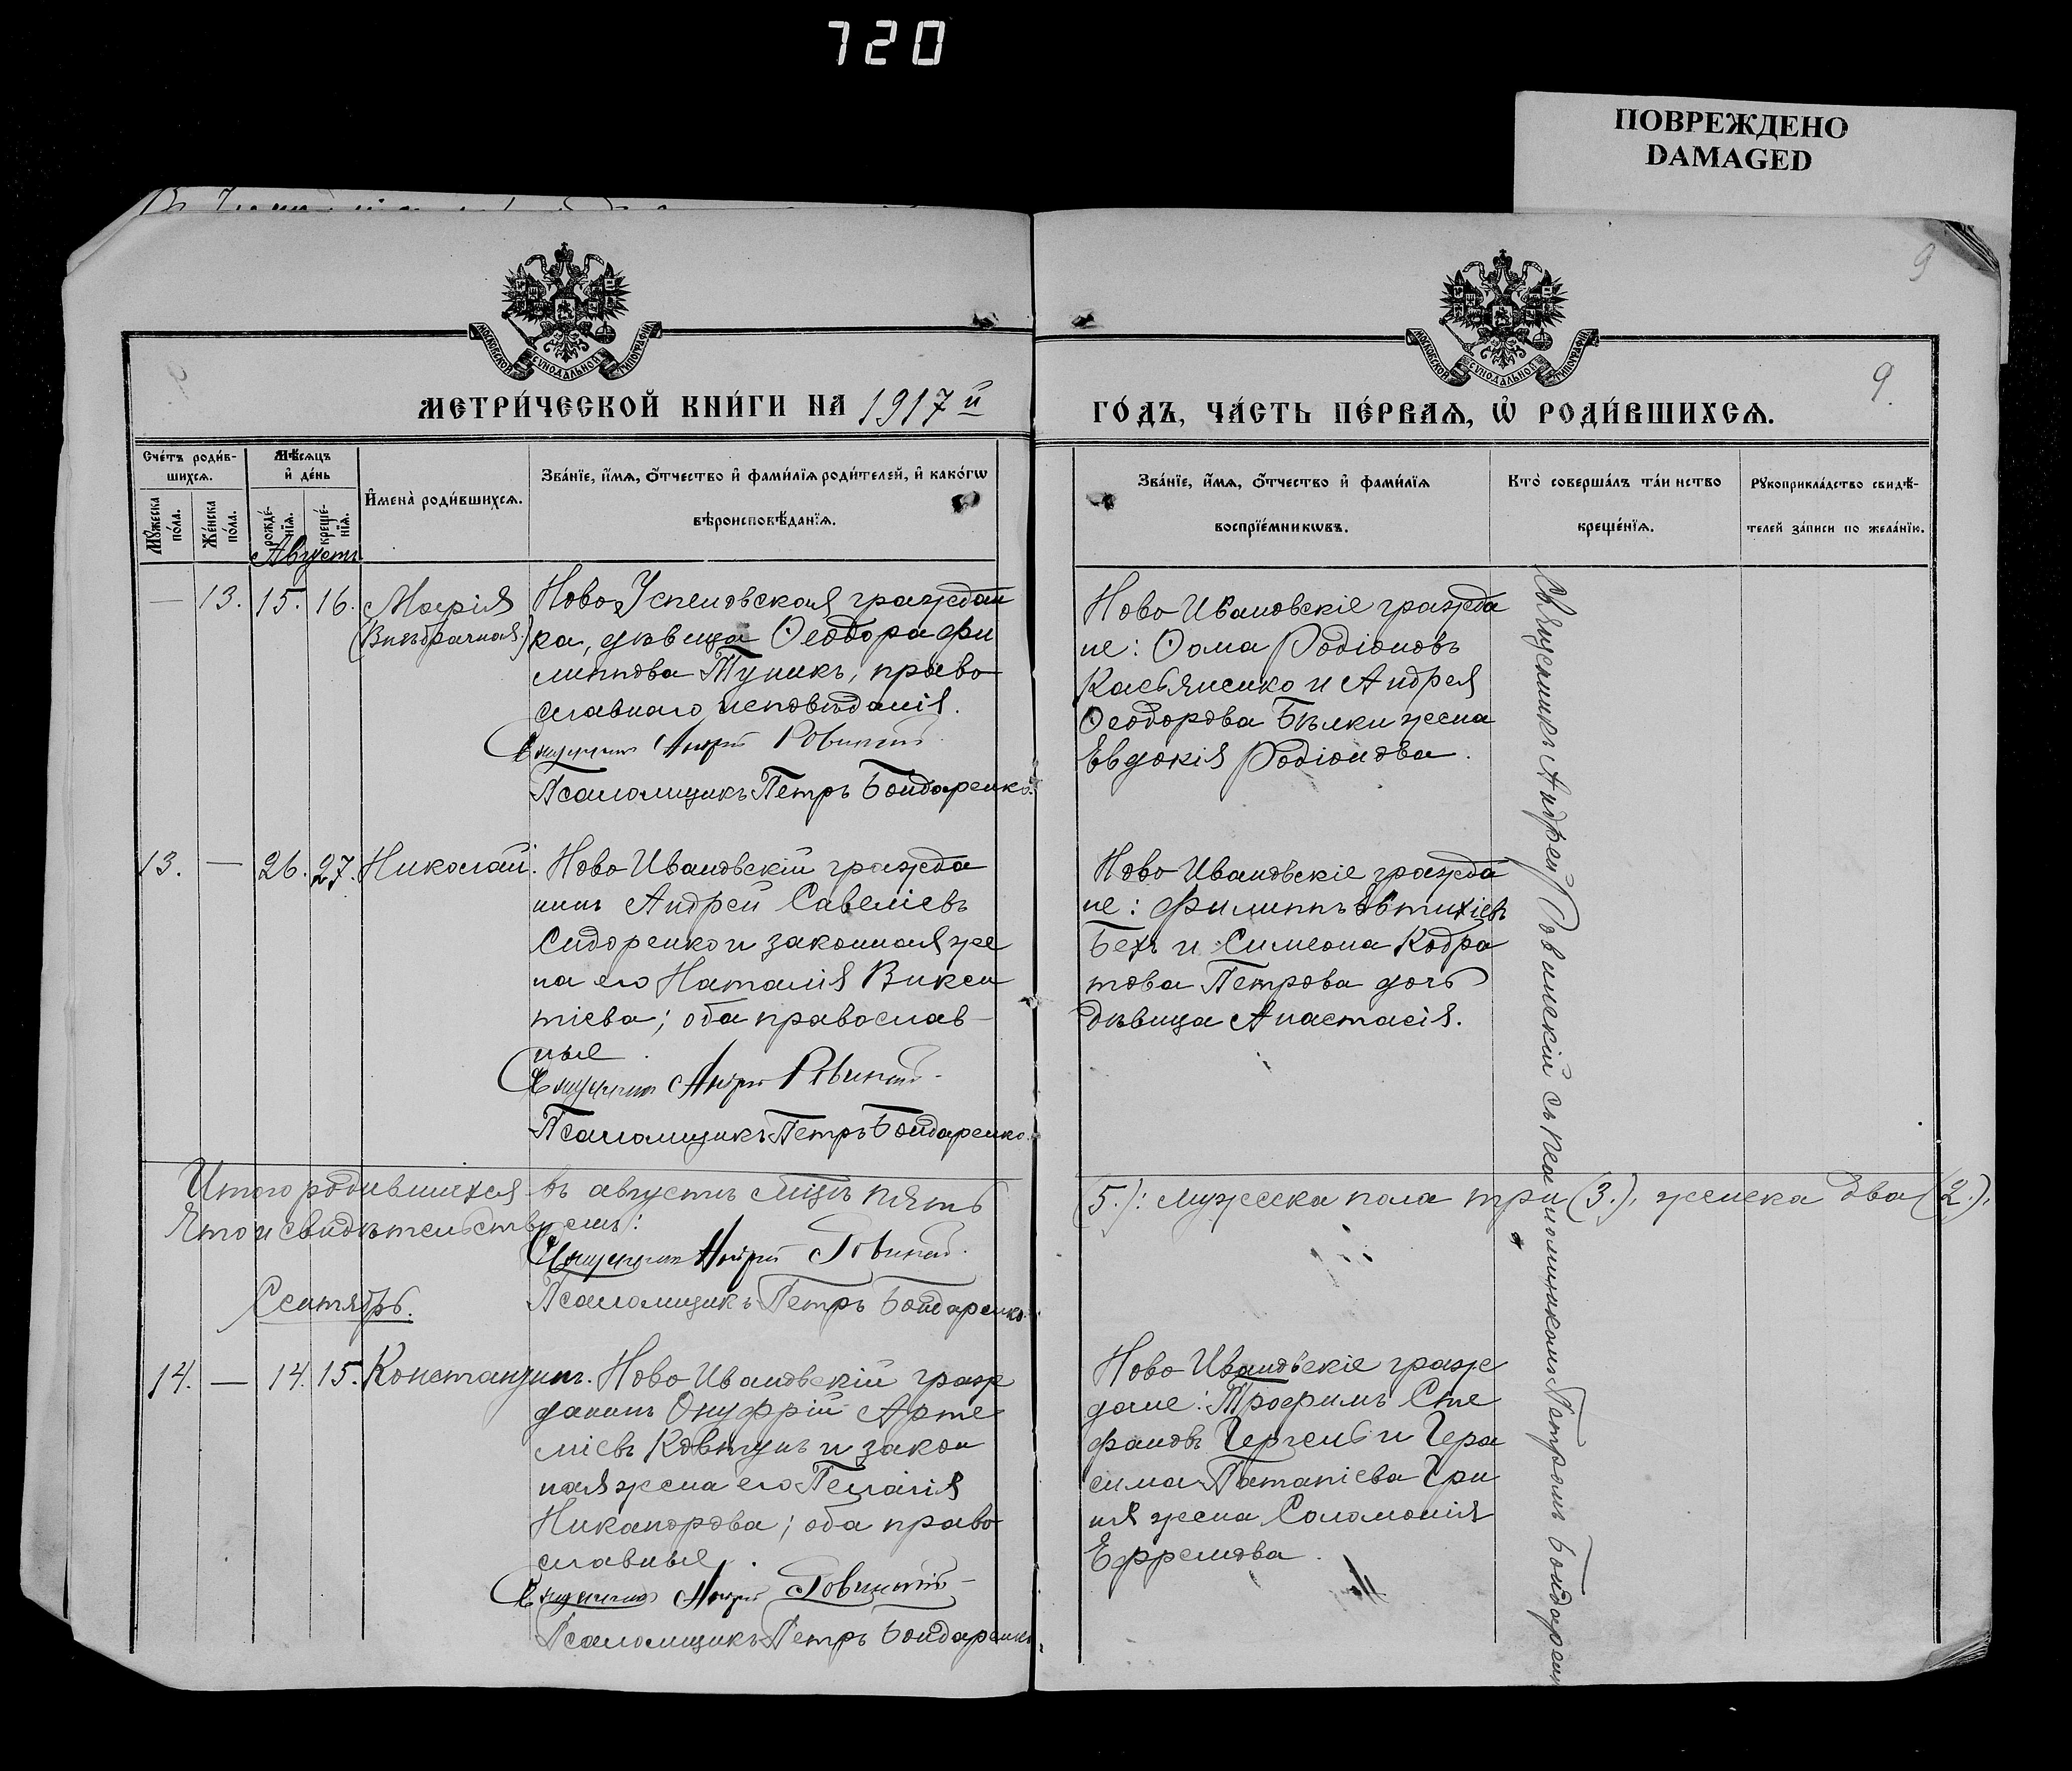 720
ПОВРЕЖДЕНО
DAMAGED
9
9.
МОСКОВСКОЙ СѴНОДАЛЬНОЙ ТИПОГРАФІИ
МОСКОВСКОЙ СѴНОДАЛЬНОЙ ТИПОГРАФІИ
МЕТРИ́ЧЕСКОЙ КНИ́ГИ НА 1917й
ГО́ДЪ, ЧА́СТЬ ПЕ́РВАѦ, Ѡ҆ РОДИ́ВШИХСѦ.
Сче́тъ роди́в-
шихсѧ.
Мꙋ́жеска по́ла.
Же́нска по́ла.
Мѣ́сѧцъ
и҆ де́нь
рожде́-
нїѧ.
креще́-
нїѧ.
И҆мена̀ роди́вшихсѧ.
Зва́нїе, и҆́мѧ, ѻ҆́тчество и҆ фами́лїѧ роди́телей, и҆ како́гѡ
вѣроисповѣ́данїѧ.
Зва́нїе, и҆́мѧ, ѻ҆́тчество и҆ фами́лїѧ
воспрїе́мникѡвъ.
Кто̀ соверша́лъ та́инство
креще́нїѧ.
Рꙋкоприкла́дство свидѣ́-
телей за́писи по жела́нїю.
Августъ
— 13. 15. 16. Марія
(Внѣбрачная.)
Ново Успеновская граждан
ка, дѣвица Ѳеодора Фи
липпова Тупикъ, право
славнаго исповѣданія.
Священникъ Андрей Ровинскій
Псаломщикъ Петръ Бондаренко.
Ново Ивановскіе гражда
не: Ѳома Родіоновъ
Касьяненко и Андрея
Ѳеодорова Бѣлки жена
Евдокія Родіонова.
13. — 26. 27. Николай.
Ново Ивановскій гражда
нинъ Андрей Савеліевъ
Сидоренко и законная же
на его Наталія Викен
тіева; оба православ-
ные.
Священникъ Андрей Ровинскій
Псаломщикъ Петръ Бондаренко.
Ново Ивановскіе гражда
не: Филиппъ Евтихіевъ
Бехъ и Симеона Кодра
това Петрова дочь
дѣвица Анастасія.
Итого родившихся въ августѣ мцѣ пять (5.): мужеска пола три (3.), женска два (2.),
Что и свидѣтельствуемъ:
Священникъ Андрей Ровинскій
Псаломщикъ Петръ Бондаренко.
Сентябрь.
14. — 14. 15. Константинъ.
Ново Ивановскій граж
данинъ Онуфрій Арте
міевъ Ковтунъ и закон
ная жена его Пелагія
Никанорова; оба право
славные.
Священникъ Андрей Ровинскій
Псаломщикъ Петръ Бондаренко.
Ново Ивановскіе граж
дане: Трофимъ Сте
фановъ Гергель и Гера
сима Патапіева Гри
ня жена Соломонія
Ефремова.
Священникъ Андрей Ровинскій съ псаломщикомъ Петромъ Бондаренк